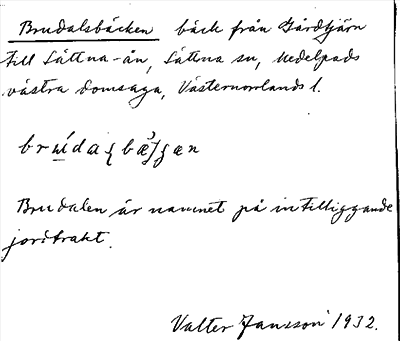 Brudalsbäcken bäck från Gårdtjärn
till Sättna-ån, Sättna sn, Medelpads
västra domsaga, Västernorrlands l.
Brudalen är namnet på intilliggande
jordtrakt.
Valter Jansson 1932.